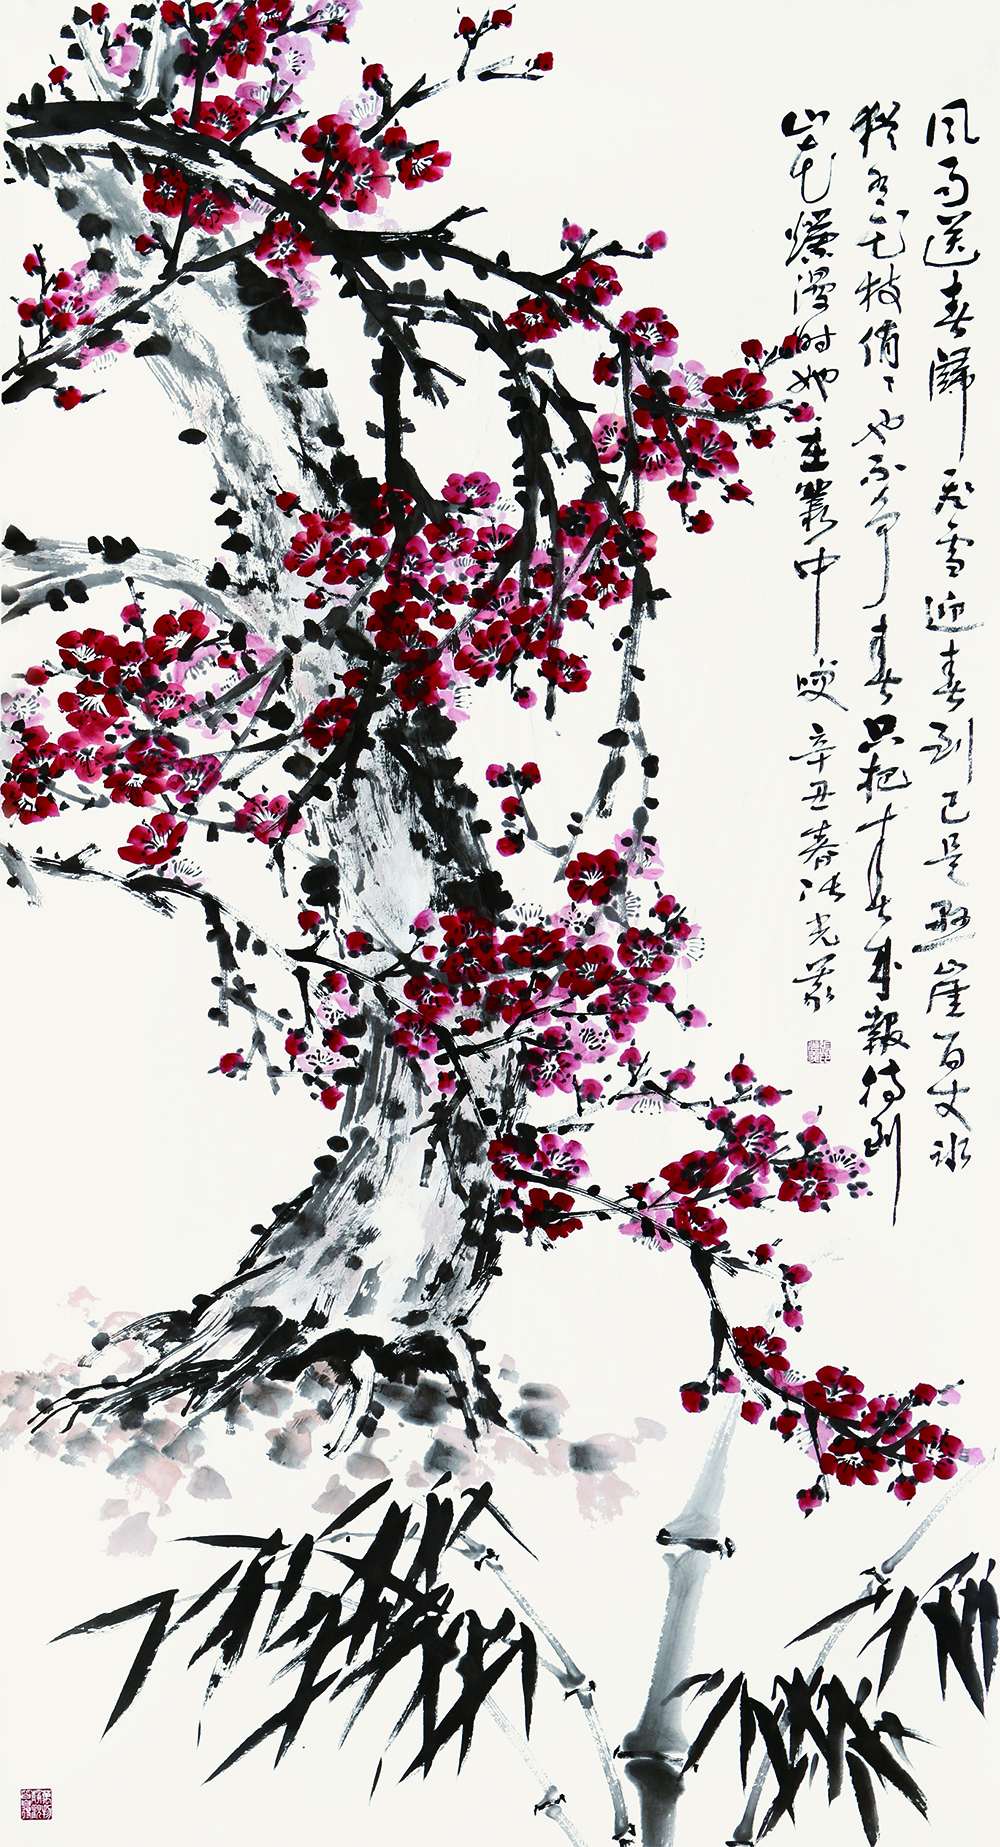 风雨送春歸飛雪迎春到已是懸崖百丈冰
猶有花枝俏〻也不争春只把春来報待到
山花爛漫时她在叢中咲 辛丑春光